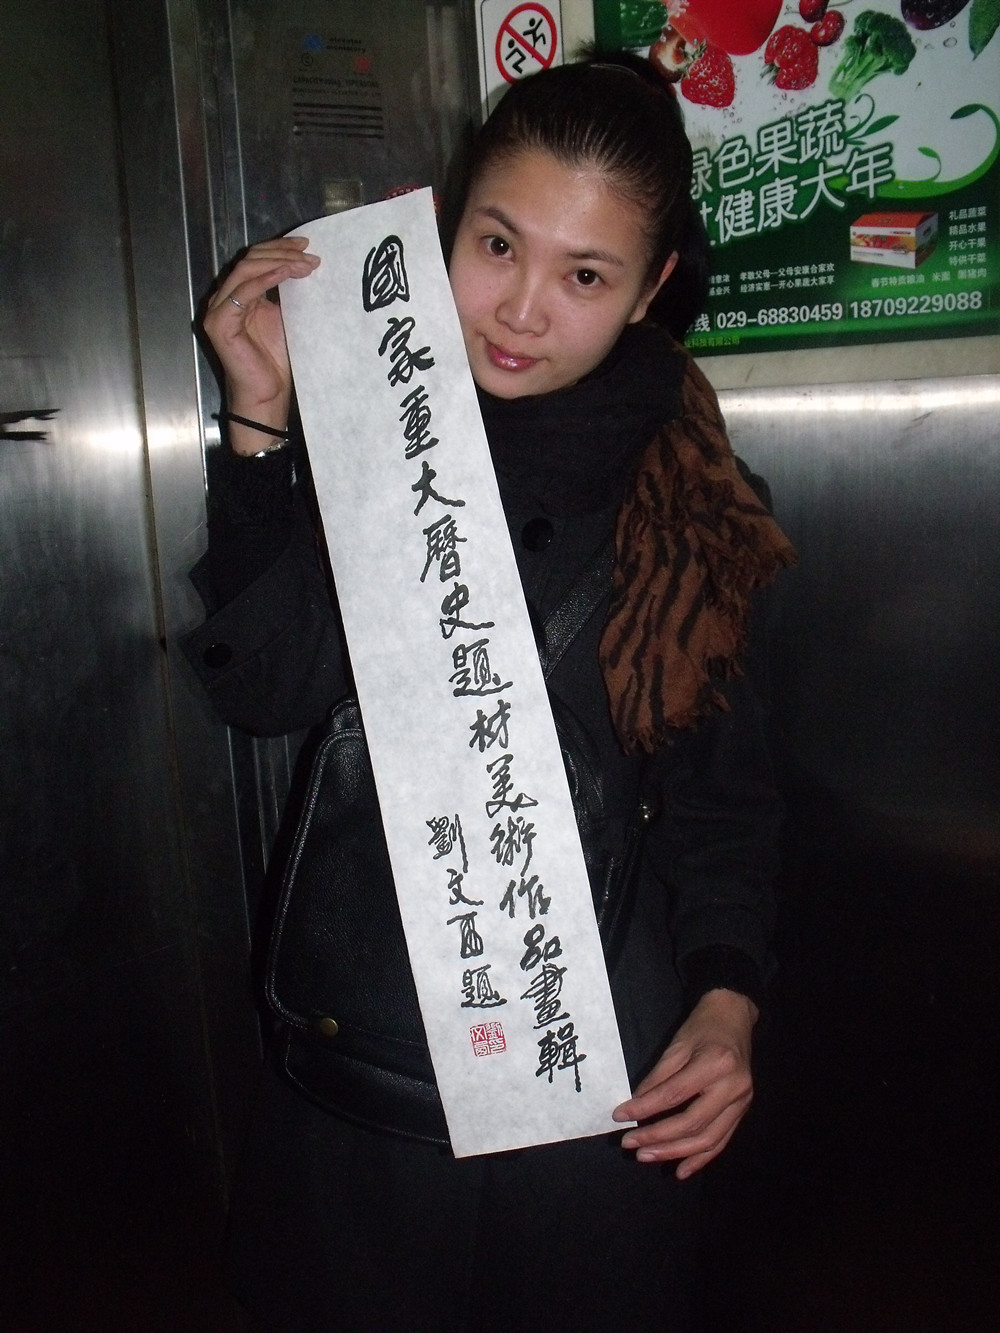 國家重大曆史題材美術作品畫輯
劉文西題
绿色果蔬
健康大年
礼品蔬菜
精品水果
开心干果
特供干菜
春节特贡粮油 米面 黑猪肉
孝敬父母—父母安康合家欢
经济实惠—开心果蔬大家享
线 029-68830459 18709229088
科技有限公司